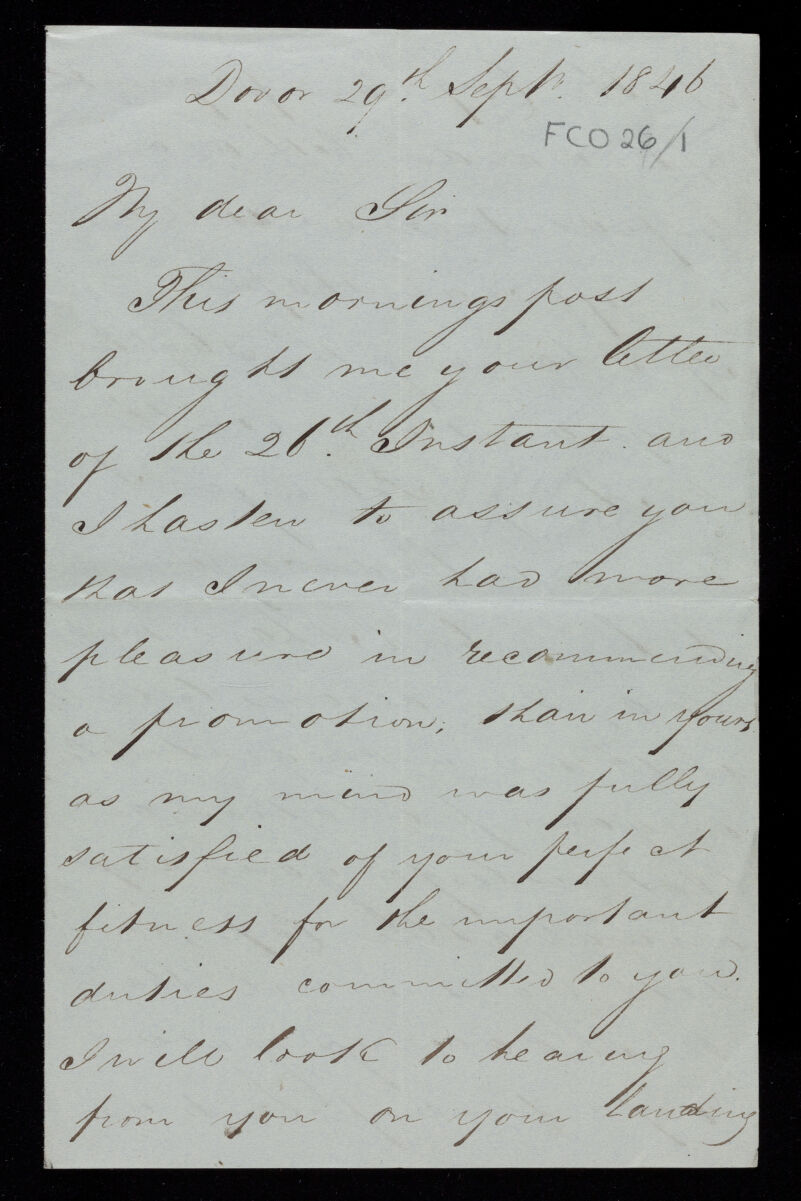 Dovor 29th. Septr. 1846
FCO 26/1
My dear Sir
This mornings post
brought me your letter
of the 26th. Instant and
I hasten to assure you
that I never had more
pleasure in recommending
a promotion, than in yours,
as my mind was fully
satisfied of your perfect
fitness for the important
duties committed to you.
I will look to hearing
from you on your landing